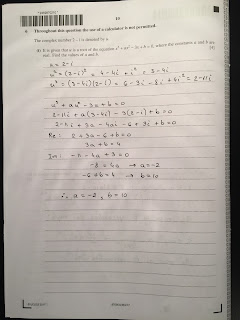 10
9 Throughout this question the use of a calculator is not permitted.
The complex number 2 − i is denoted by u.
(i) It is given that u is a root of the equation x³ + ax² − 3x + b = 0, where the constants a and b are
real. Find the values of a and b. [4]
u = 2 - i
u² = (2-i)² = 4 - 4i + i² = 3 - 4i
u³ = (3-4i)(2-i) = 6 - 3i - 8i + 4i² = 2 - 11i
u³ + au² - 3u + b = 0
2 - 11i + a(3-4i) - 3(2-i) + b = 0
2 - 11i + 3a - 4ai - 6 + 3i + b = 0
Re: 2 + 3a - 6 + b = 0
3a + b = 4
Im: -11 - 4a + 3 = 0
-8 = 4a → a = -2
-6 + b = 4 → b = 10
∴ a = -2, b = 10